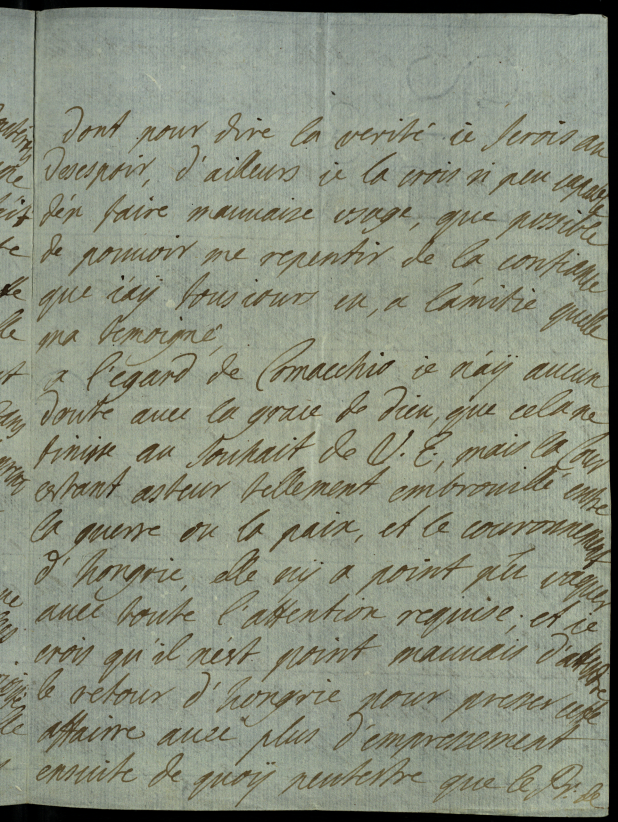 dont pour dire la verité ie serois au
desespoir, d'ailleurs ie la crois si peu capable
d'en faire mauuaise usage, que possible
de pouuoir me repentir de la confiance
que i'aÿ tousiours eu, a l'amitie quelle
ma temoigné,
a l'egard de Comacchio ie n'aÿ aucun
doute auec la graie de dieu, que cela ne
finisse au souhait de V. E, mais la Cour
estant asteur tellement embrouillé entre
la guerre ou la paix, et le couronnement
d'hongrie, elle nÿ a point pû vaquer
auec toute l'attention requise, et ie
crois qu'il n'est point mauuais d'attendre
le retour d'hongrie pour presser cette
affaire auec plus d'empressement
ensuite de quoÿ peutestre que le Pr. de